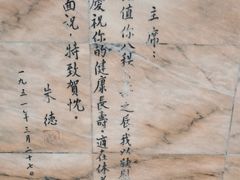 主席：
值你八秩
之辰，我以
慶祝你的健康長壽。適在休
面況，特致賀忱。
朱德
一九五一年三月二十七日